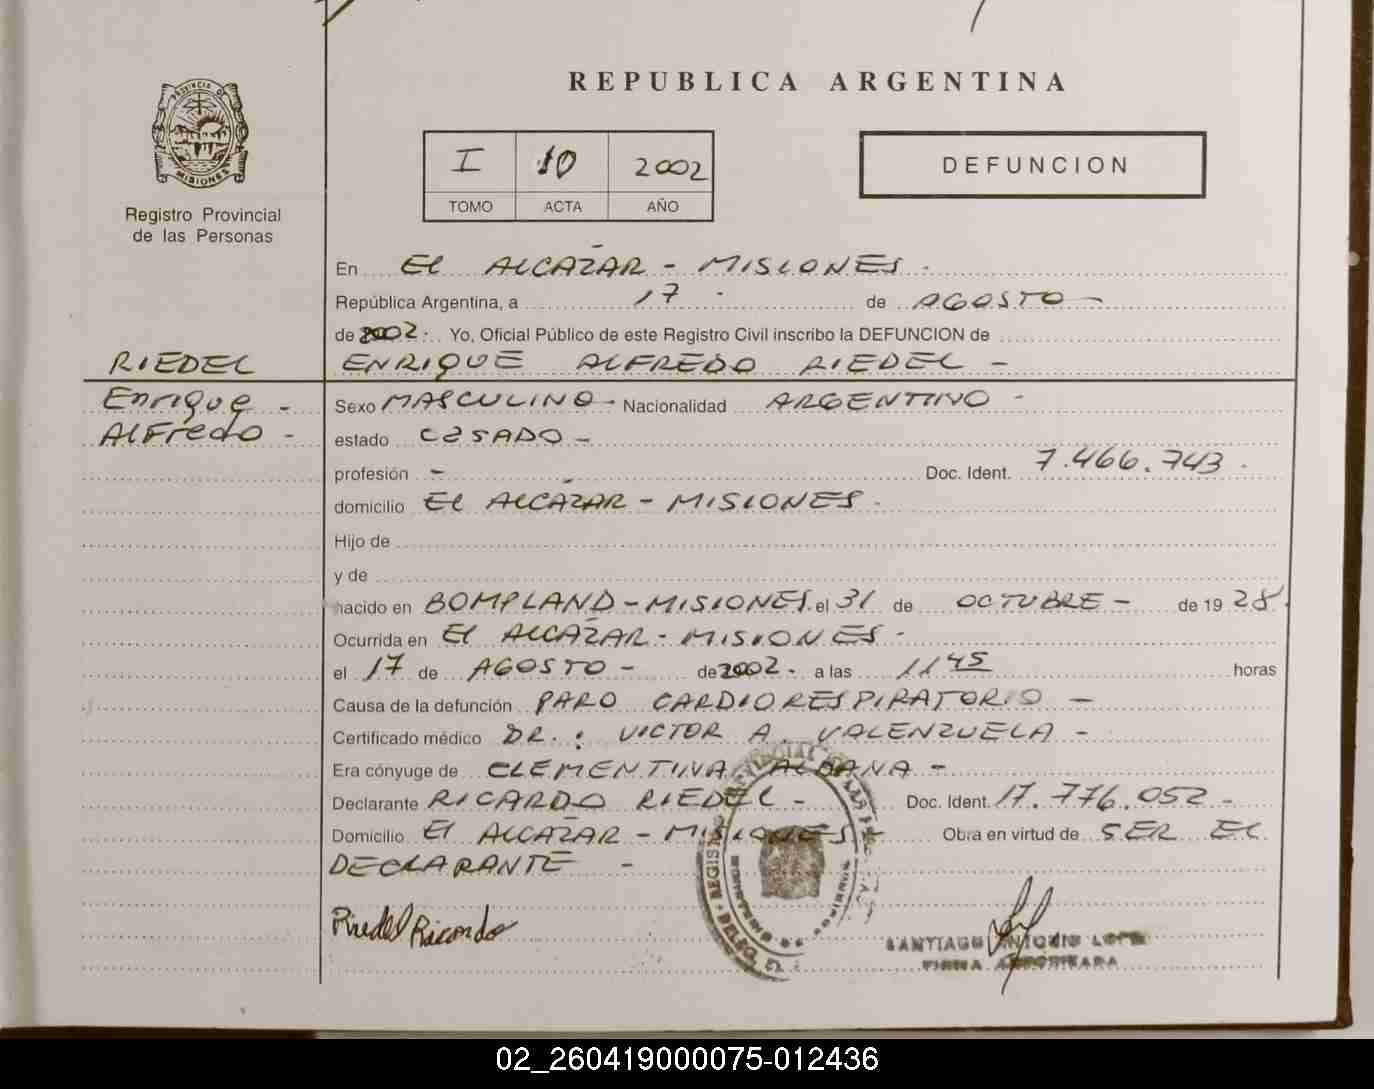 PROVINCIA DE
MISIONES
Registro Provincial
de las Personas
REPUBLICA ARGENTINA
I 10 2002
TOMO ACTA AÑO
DEFUNCION
En EL ALCAZAR - MISIONES -
República Argentina, a 17 - de AGOSTO -
de 2002 - Yo, Oficial Público de este Registro Civil inscribo la DEFUNCION de
RIEDEL ENRIQUE ALFREDO RIEDEL -
Enrique - Sexo MASCULINO - Nacionalidad ARGENTINO -
Alfredo - estado CASADO -
profesión - Doc. Ident. 7.466.743 -
domicilio EL ALCAZAR - MISIONES -
Hijo de
y de
nacido en BOMPLAND - MISIONES el 31 de OCTUBRE - de 19 28.
Ocurrida en El ALCAZAR - MISIONES -
el 17 de AGOSTO - de 2002 - a las 11 45 horas
Causa de la defunción PARO CARDIORESPIRATORIO -
Certificado médico DR. : VICTOR A. VALENZUELA -
Era cónyuge de CLEMENTINA -
Declarante RICARDO RIEDEL - Doc. Ident. 17.776.052 -
Domicilio El ALCAZAR - MISIONES - Obra en virtud de SER EL
DECLARANTE -
Riedel Ricardo
SANTIAGO ANTONIO
FIRMA AUTORIZADA
02_260419000075-012436